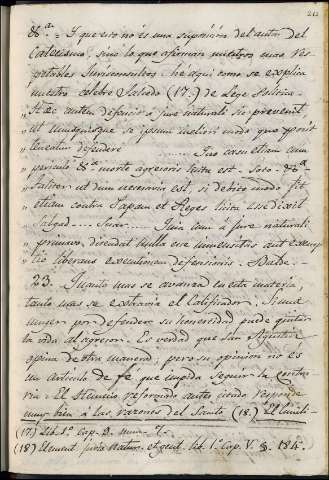 212
&a.= Y que esto no es una suposicion del autor del
Catecismo, sino lo que afirman nuestros mas res-
petables Jurisconsultos, he aqui como se explica
nuestro celebre Salcedo (17.) de Lege Politica.
„ Hæc autem defensio a jure naturali sic prevenit,
„ ut unusquisque se ipsum meliori modo quo possit
„ teneatur defendere ......... Quo casu etiam cum
„ periculo &a. morte agresoris licita est. Soto. &a.
„ Saltem ut dum necesarium est, si debito modo fit
„ etiam contra Papam et Reges licita esse dixit
„ ..... Quia cum á jure naturali
„ primævo, descendat nulla esse ut exemp-
„ tio liberans executionem defensionis. Balde.
23. Quanto mas se avanza en esta materia,
tanto mas se extravia el Calificador. Si una
muger por defender su honestidad puede quitar
la vida al agresor. Es verdad que San Agustin
opina de otra manera; pero su opinion no es
un articulo de fé que impida seguir la contra-
ria. El Heinecio reformado autor citado responde
muy bien á las razones del Santo (18.) El
(17.) Lib. 1.º Cap. 2. num. 7.
(18) Element. juris natur. et gent. lib. 1.º Cap. V. §. 184.